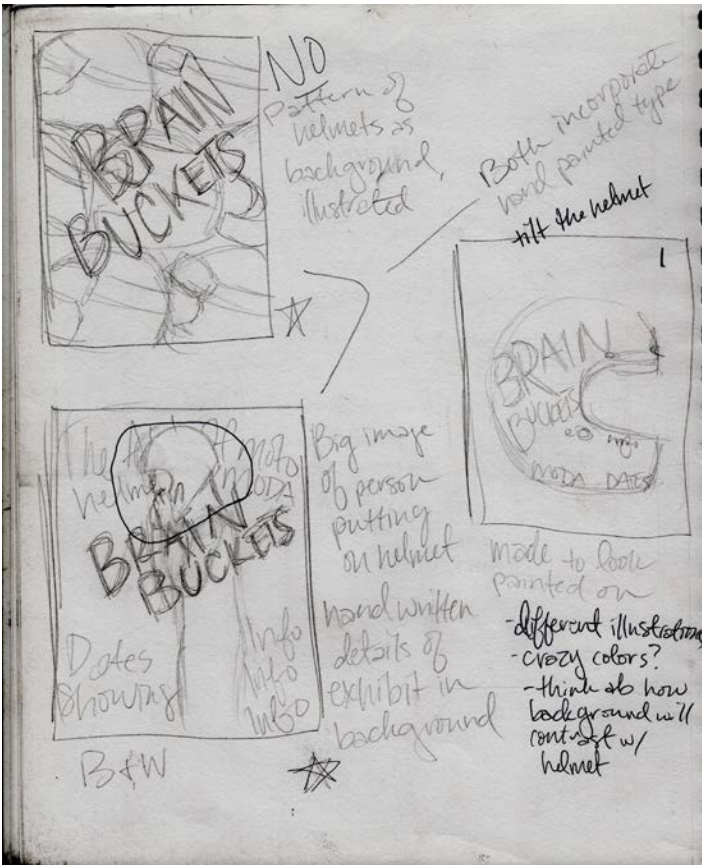 BRAIN
BUCKETS
NO
pattern of
helmets as
background,
illustrated
Both incorporate
hand painted type
tilt the helmet
1
BRAIN
BUCKETS
info
MODA DATES
made to look
painted on
-different illustrations
-crazy colors?
-think ab how
background will
contrast w/
helmet
The Art of Moto
helmets MODA
BRAIN
BUCKETS
Dates
showing
Info
Info
Info
B&W
Big image
of person
putting
on helmet
hand written
details of
exhibit in
background